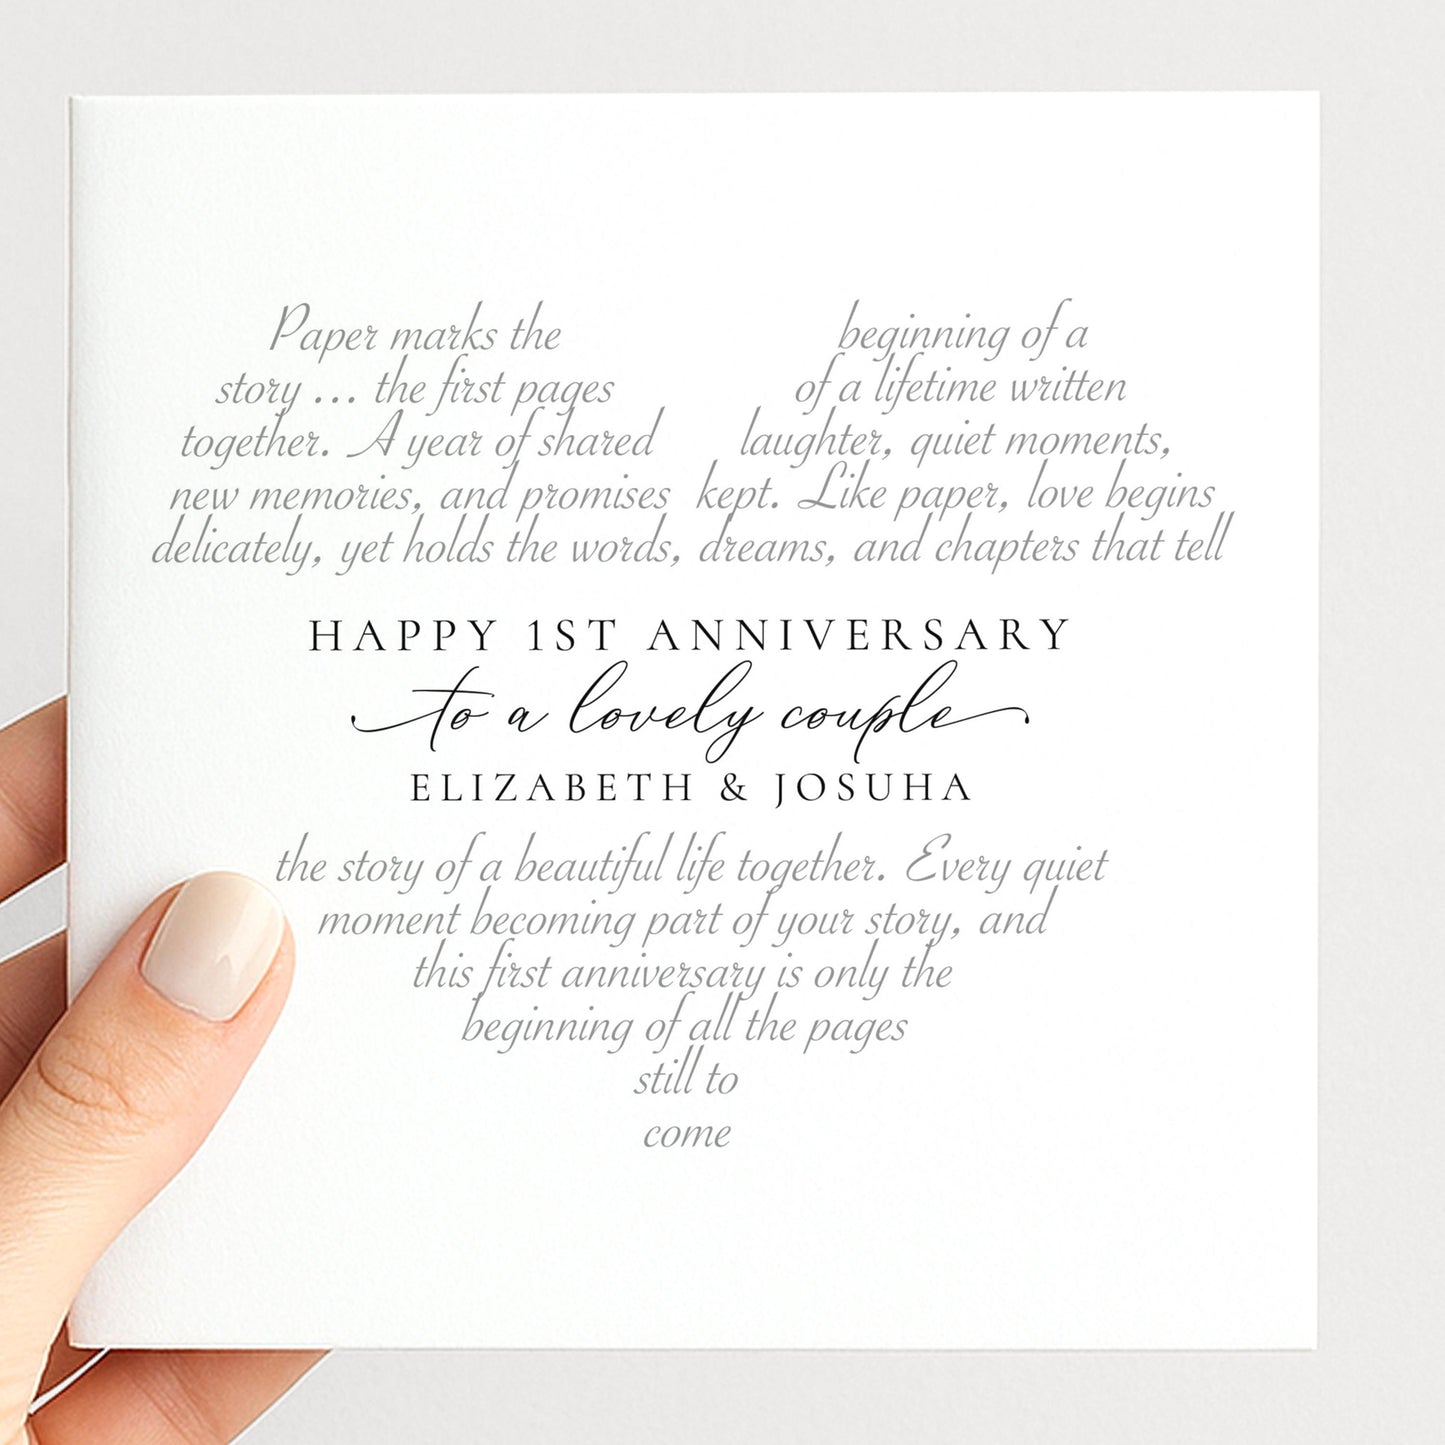 Paper marks the beginning of a
story ... the first pages of a lifetime written
together. A year of shared laughter, quiet moments,
new memories, and promises kept. Like paper, love begins
delicately, yet holds the words, dreams, and chapters that tell
HAPPY 1ST ANNIVERSARY
to a lovely couple
ELIZABETH & JOSUHA
the story of a beautiful life together. Every quiet
moment becoming part of your story, and
this first anniversary is only the
beginning of all the pages
still to
come